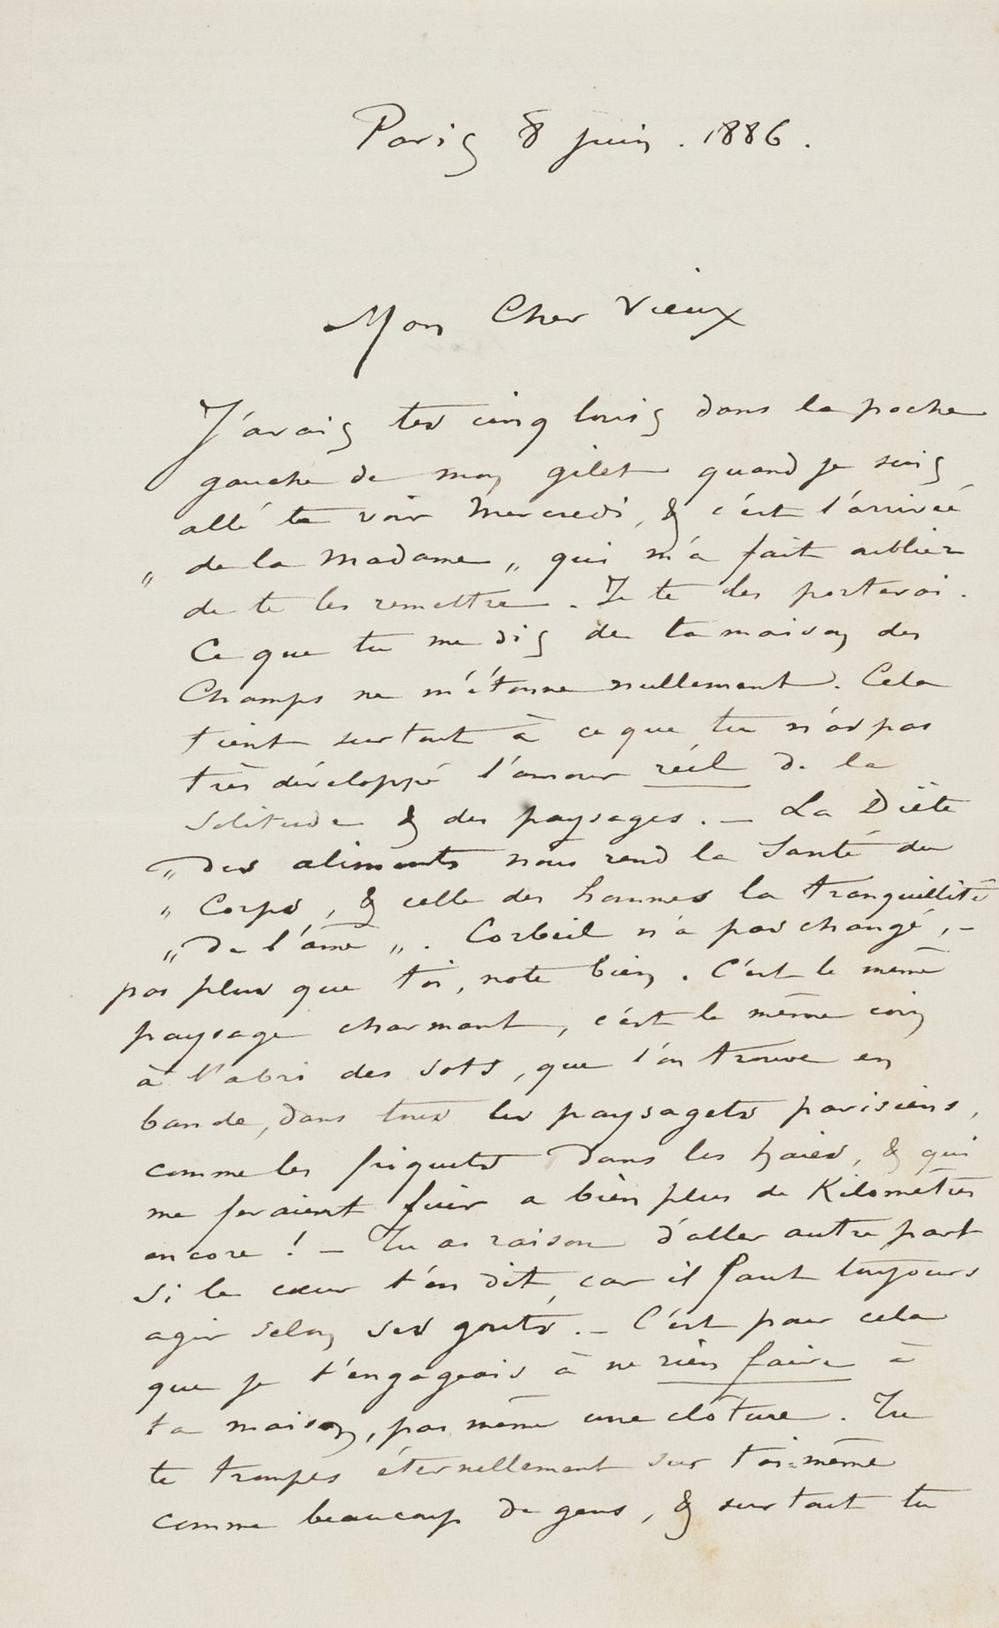 Paris 8 juin. 1886.
Mon Cher Vieux
J'avais tes cinq louis dans la poche
gauche de mon gilet quand je suis
allé te voir Mercredi, & c'est l'arrivée
" de la Madame " qui m'a fait oublier
de te les remettre. Je te les porterai.
Ce que tu me dis de ta maison des
Champs ne m'étonne nullement. Cela
tient surtout à ce que tu n'as pas
très développé l'amour réel de la
Solitude & des paysages. — La Diète
" des aliments nous rend la Santé du
" Corps, & celle des hommes la tranquillité
" de l'âme ". Corbeil n'a pas changé, -
pas plus que toi, note bien. C'est le même
paysage charmant, c'est le même coin
à l'abri des sots, que l'on trouve en
bande, dans tous les paysagets parisiens,
comme les friquets dans les haies, & qui
me feraient fuir a bien plus de Kilomètres
encore ! — Tu as raison d'aller autre part
si le cœur t'en dit, car il faut toujours
agir selon ses goûts. — C'est pour cela
que je t'engageais à ne rien faire à
ta maison, pas même une clôture. Tu
te trompes éternellement sur toi-même
comme beaucoup de gens, & surtout tu